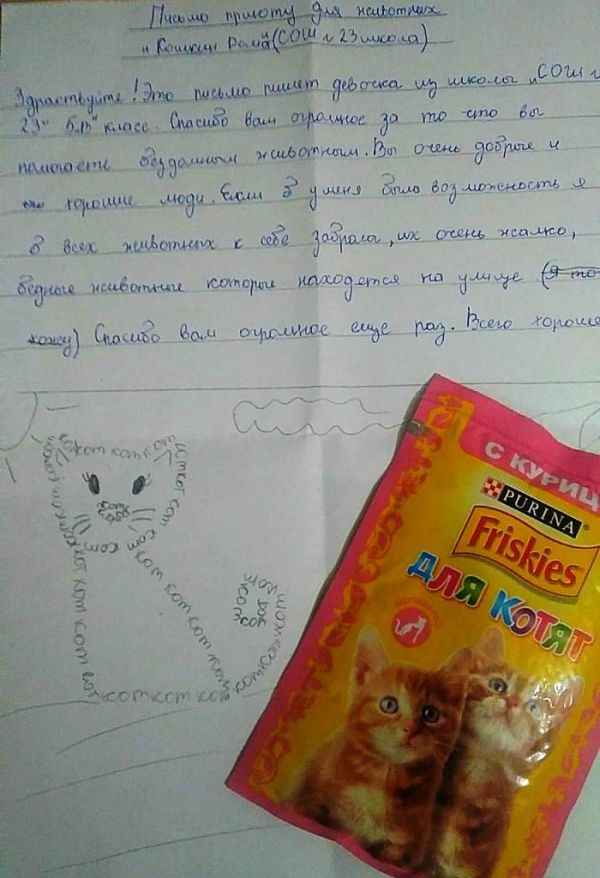 Письмо приюту для животных
и Кошкин Дома" (СОШ № 23 школа)
Здраствуйте! Это письмо пишет девочка из школы "СОШ №
23" 5 "т" класс. Спасибо вам огромное за то что вы
памагаете бездамным животным. Вы очень добрые и
хорошие люди. Если б у меня было возможность я
б всех животных к себе забрала, их очень жалко,
бедные животные которые находетса на улице (я то
кожу) Спасибо вам огромное еще раз. Всего хороше
кот кот кот кот
кот кот кот кот кот
кот кот кот кот
С КУРИЦ
PURINA
Friskies
ДЛЯ КОТЯТ